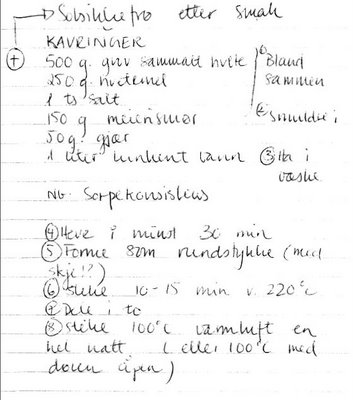 → Solsikkefrø etter smak
KAVRINGER
+ 500 g. grov sammalt hvete ① Bland
250 g. hvetemel sammen
1 ts salt
150 g meierismør ② Smuldre i
50 g. gjær
1 liter lunkent vann ③ Ha i
væske
NB. Sørpekonsistens
④ Heve i minst 30 min
⑤ Forme som rundstykke (med
skje!?)
⑥ Steke 10-15 min v. 220°C
⑦ Dele i to
⑧ Steke 100°C varmluft en
hel natt (eller 100°C med
døren åpen)